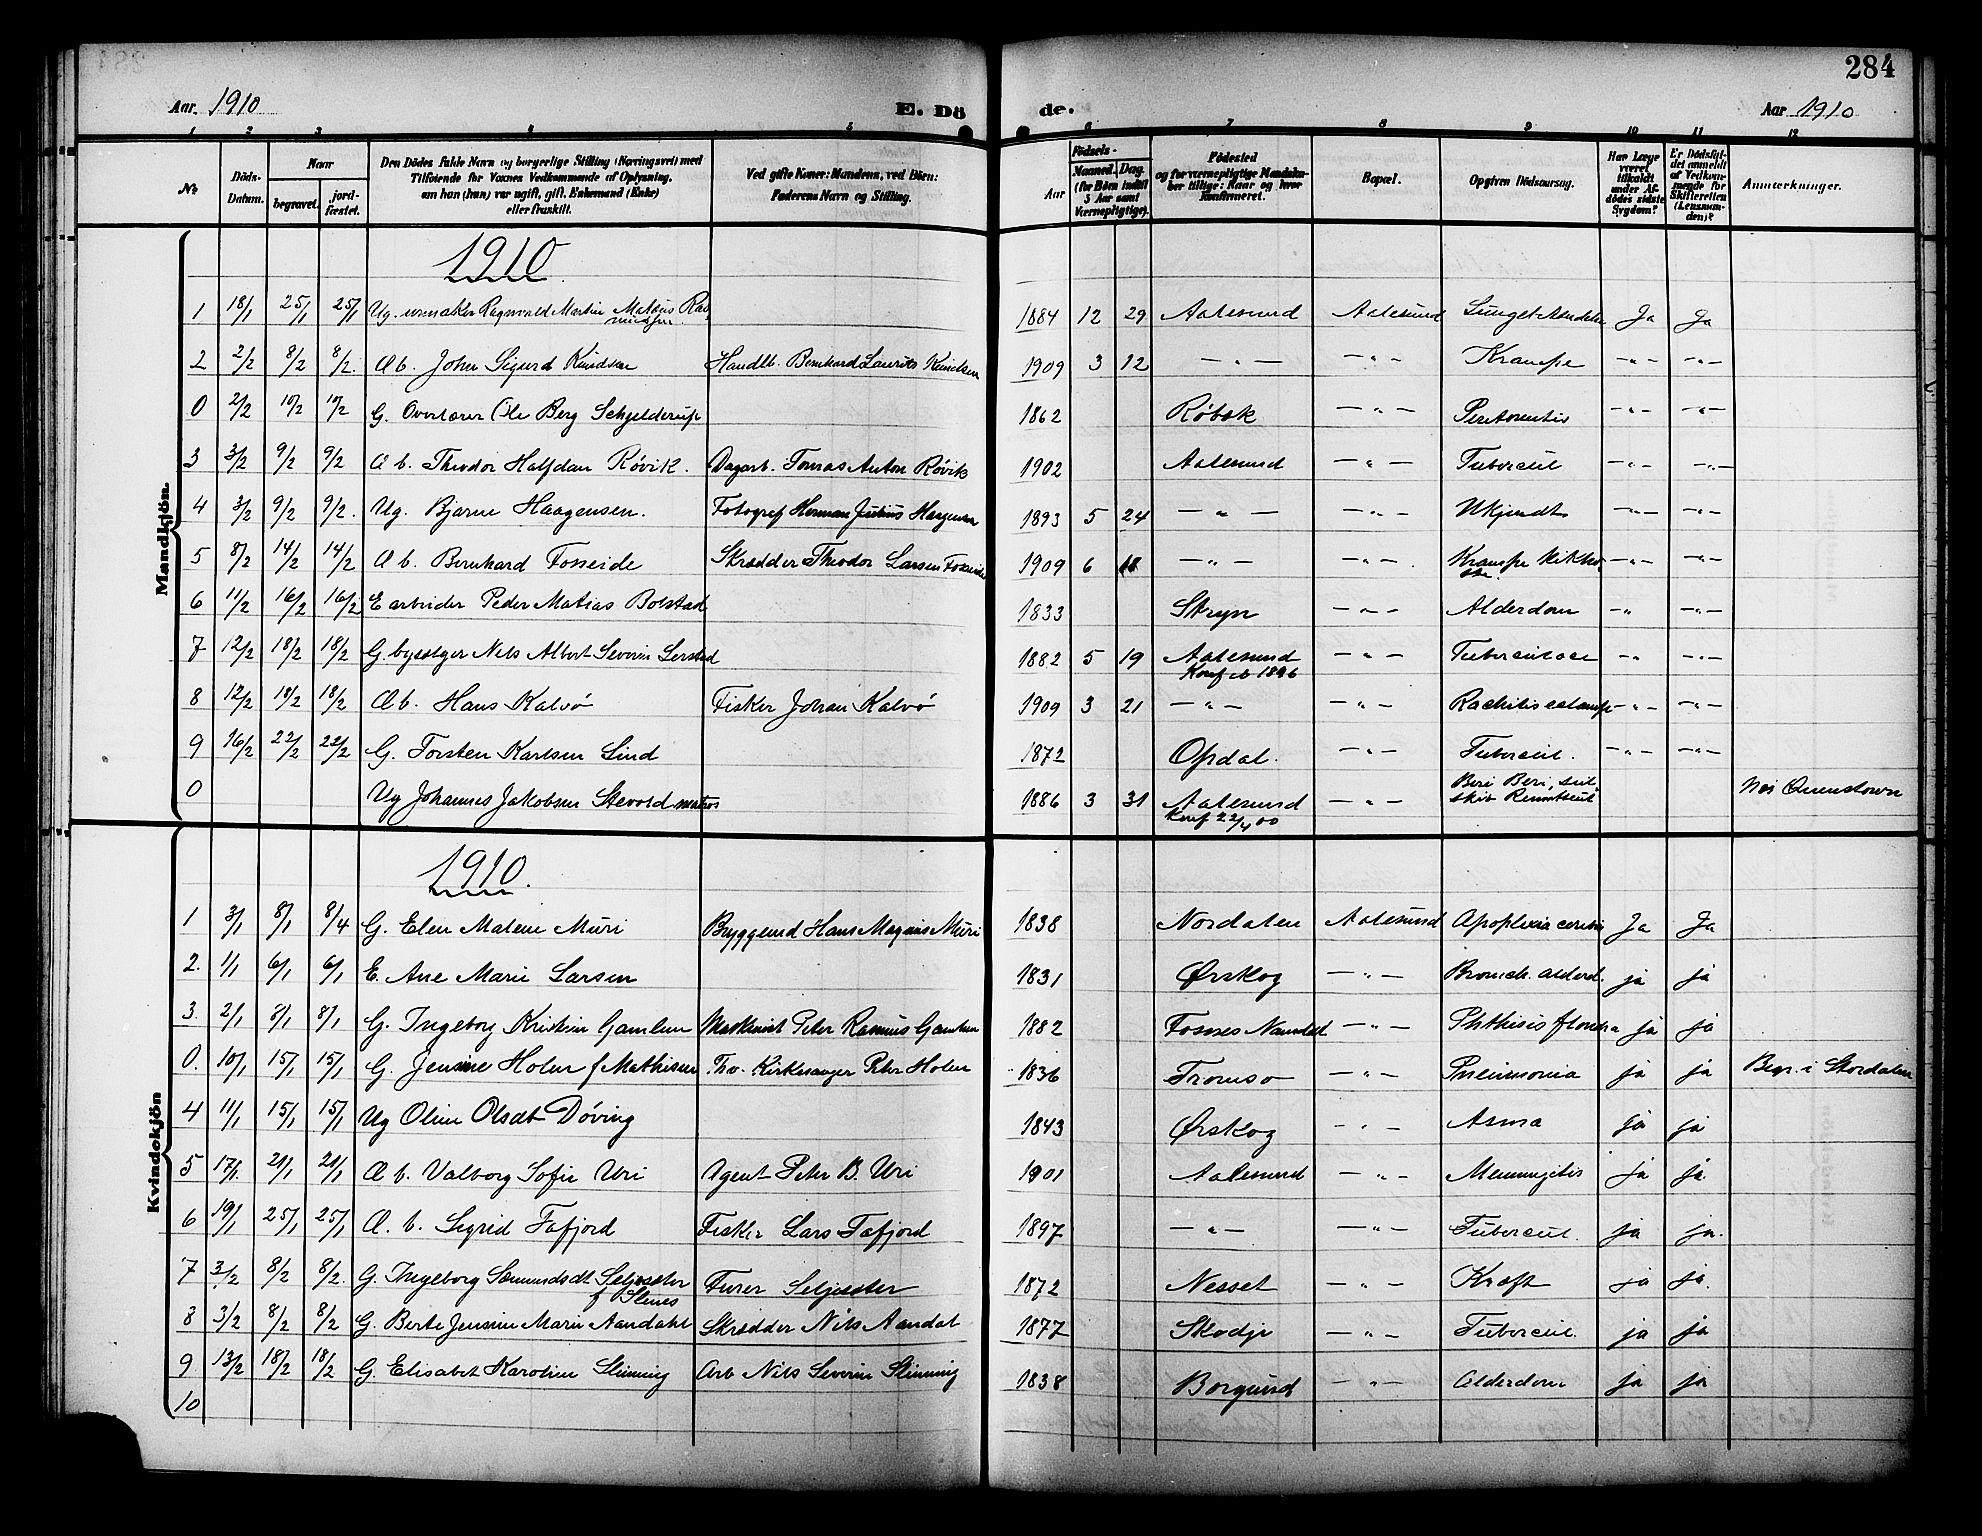 284
Aar 1910 E. Dö de. Aar 1910
1 2 3 4 5 6 7 8 9 10 11 12
No
Döds-Datum.
Naar
begravet.
jord-fæstet.
Den Dödes fulde Navn og borgerlige Stilling (Næringsvei) med
Tilföiende for Voxnes Vedkommende af Oplysning,
om han (hun) var ugift, gift, Enkemand (Enke)
eller fraskilt.
Ved gifte Koner: Mandens, ved Börn:
Faderens Navn og Stilling.
Födsels-
Aar
Maaned. Dag.
(for Börn indtil
5 Aar samt
Værnepligtige).
Födested
og for værnepligtige Mandskaber tillige: Naar og hvor
konfirmeret.
Bopæl.
Opgiven Dödsaarsag.
Har Læge
været
tilkaldt
under Afdödes sidste
Sygdom?
Er Dödsfaldet anmeldt
af Vedkommende for
Skifteretten
(Lensmanden)?
Anmærkninger.
Mandkjön.
1910.
1 18/1 25/1 25/1 Ug. urmaker Ragnvald Martin Mathius Rasmussen. 1884 12 29 Aalesund Aalesund Ja Ja
2 2/2 8/2 8/2. Æ b. John Sigurd Knudsen Handlb. Bernhard Laurits Knudsen 1909 3 12 —"— —"— Krampe —"— —"—
0 2/2 10/2 10/2 G. Overlærer Ole Berg Schjelderup 1862 Røbæk —"— —"— —"—
3 3/2 9/2 9/2 Æ b. Theodor Halfdan Røvik. Dagarb. Tomas Anton Røvik 1902 Aalesund —"— Tubercul —"— —"—
4 3/2 9/2 9/2. Ug. Bjarne Haagensen. Fotograf Herman Julius Haagensen 1893 5 24 —"— —"— Ukjendt —"— —"—
5 8/2 14/2 14/2 Æ b. Bernhard Fosseide Skrædder Theodor Larsen Fosseide 1909 6 —"— —"— Krampe Kikhoste. —"— —"—
6 11/2 16/2 16/2 E arbeider Peder Matias Bolstad 1833 Stryn —"— Alderdom —"— —"—
7 12/2 18/2 18/2 G. bysælger Nils Albert Severin 1882 5 19 Aalesund —"— —"— —"—
8 12/2 18/2 18/2 Æ b. Hans Kalvø Fisker Johan Kalvø 1909 3 21 —"— —"— —"— —"—
9 16/2 22/2 22/2 G. Torsten Karlsen Lind 1872 Opdal. —"— Tubercul. —"— —"—
0 Ug Johannes Jakobsen Stevold matros 1886 3 31 Aalesund —"— Beri Beri,
Konf 22/4 00
Kvindekjön
1910.
1 3/1 8/1 8/4 G. Elen Malene Muri Bryggemd Hans Magnus Muri 1838 Nordalen Aalesund Apoplexia cerebri Ja Ja
2. 1/1 6/1 6/1 E. Ane Marie Larsen 1831 Ørskog —"— Bronch. alderd. ja ja
3. 2/1 8/1 8/1 G. Ingeborg Kristine Gamlem Maskinist Peter Rasmus Gamlem 1882 Fosnes Namdal —"— Phthisis florida ja ja
0. 10/1 15/1 15/1 G. Jensine Holen f Mathisen Fhv. Kirkesanger Peter Holen 1836 Tromsø —"— Pneumonia ja ja Begr. i Stordalen
4 11/1 15/1 15/1 Ug Oline Olsdt Døving 1843 Ørskog —"— Asma ja ja
5 17/1. 21/1 21/1 Æ b. Valborg Sofie Uri Agent Peter B. Uri 1901 Aalesund —"— Menningitis ja ja.
6 19/1 25/1 25/1 Æ. b. Sigrid Tafjord Fisker Lars Tafjord 1897 —"— —"— Tubercul. ja ja.
7 3/2 8/2 8/2. G. Ingeborg Sæmundsdt Seljesæter Furer Seljesæter 1872 Nesset —"— Kræft ja ja.
8 3/2 8/2 8/2 G. Berte Jensine Marie Aandahl Skrædder Nils Aandal 1877 Skodje —"— Tubercul. ja ja
9 13/2 18/2 18/2 G. Elisabet Karoline Slinning Arb Nils Severin Slinning 1838 Borgund —"— Alderdom ja ja
10